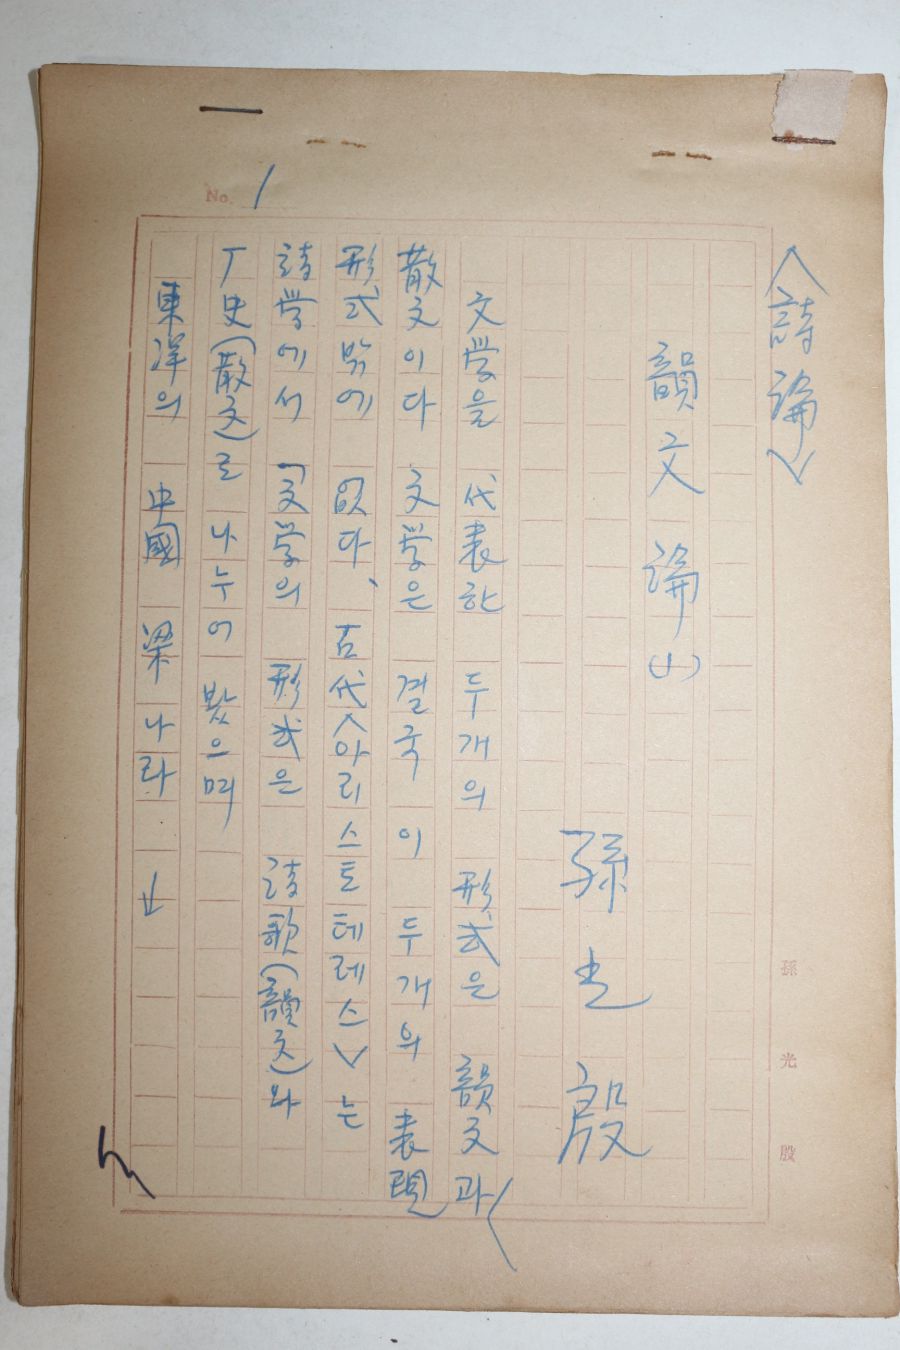 No. 1
<詩論>
韻文論(1)
孫光殷
文学을 代表한 두개의 形式은 韻文과
散文이다 文学은 결국 이 두개의 表現
形式 밖에 없다、古代<아리스토테레스>는
詩学에서 「文学의 形式은 詩歌(韻文)와
厂史(散文)로 나누어 봤으며
東洋의 中國 梁나라 ↓
孫光殷